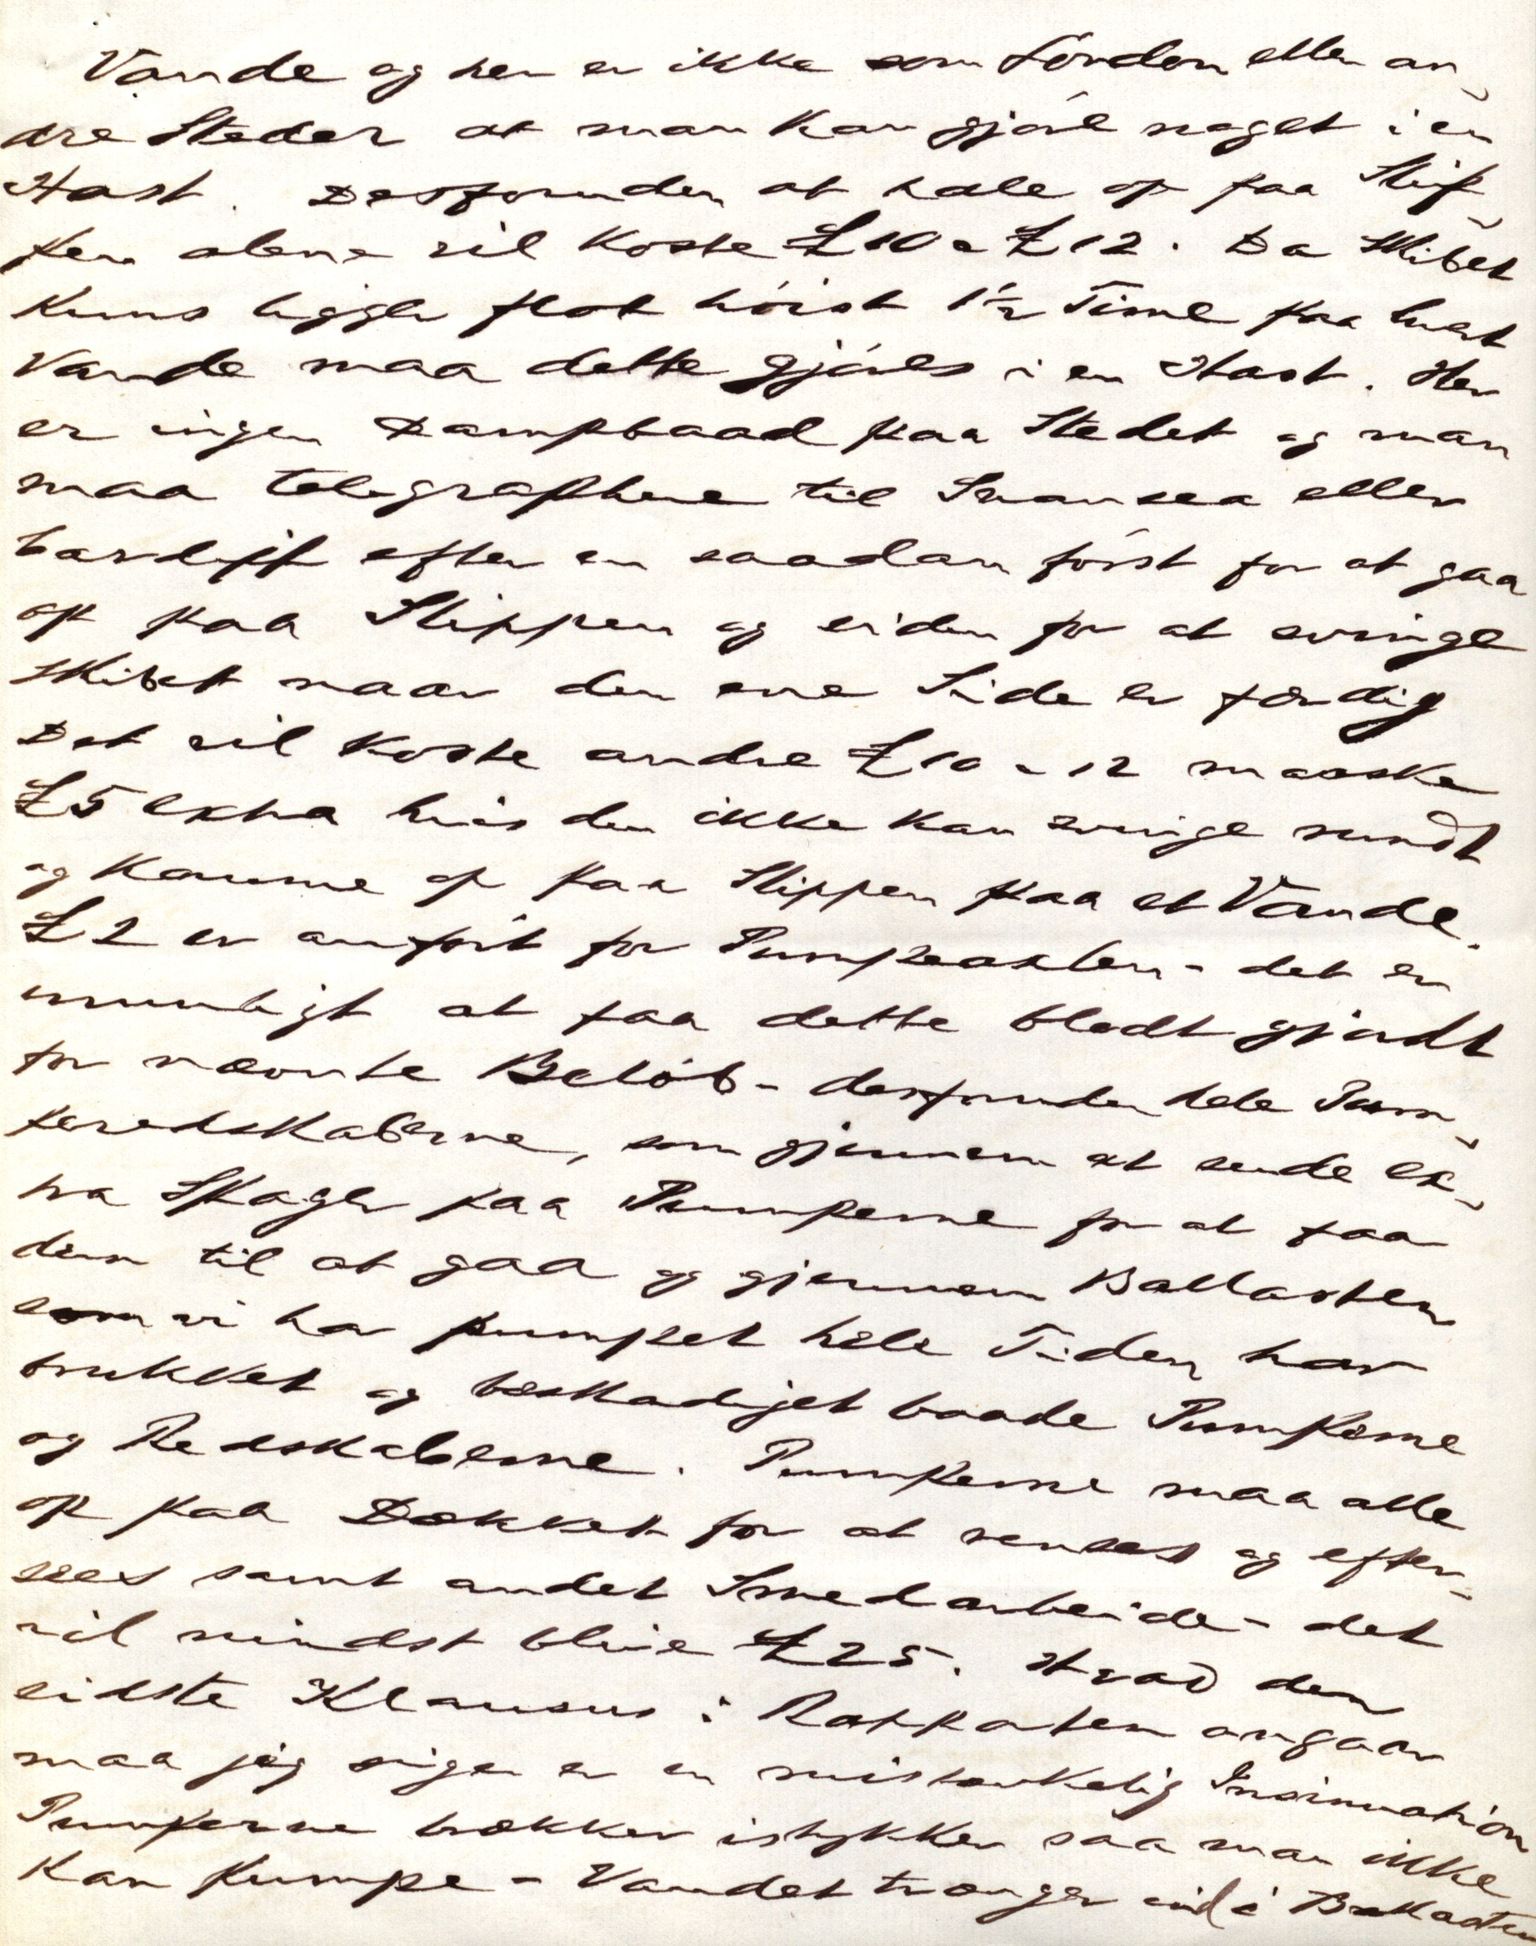 Vande og her er ikke som London eller an-
dre Steder at man kan gjøre noget i en
Hast. Desforuden at hale op paa Slip-
pen alene vil koste £10 a £12. Da Skibet
kuns ligger flot høist 1½ Time paa hvert
Vande maa dette gjøres i en Hast. Her
er ingen Dampbaad paa Stedet og man
maa telegraphere til Swansea eller
Cardiff efter en saadan først for at gaa
op paa Slippen og siden for at svinge
Skibet naar den ene Side er færdig
Det vil koste andre £10 a 12 maaske
£5 extra hvis den ikke kan svinge rundt
og komme op paa Slippen paa et Vande.
£2 er anført for Pumpeaxlen - det er
umuligt at faa dette blodt gjordt
for nævnte Beløb - desforuden hele Pum-
peredskaberne, som gjennem at sende ex-
tra Skager paa Pumperne for at faa
dem til at gaa og gjennem Ballasten
som vi har pumpet hele Tiden har
brukket og beskadiget baade Pumperne
og Redskaberne. Pumperne maa alle
op paa Dækket for at renses og efter-
sees samt andet Smedarbeide - det
vil mindst blive £25. Hvad den
sidste Klausus i Rapporten angaar
maa jeg sige er en mistænkelig Insinuation
Pumperne brækker istykker saa man ikke
kan pumpe - Vandet trænger ind i Ballasten